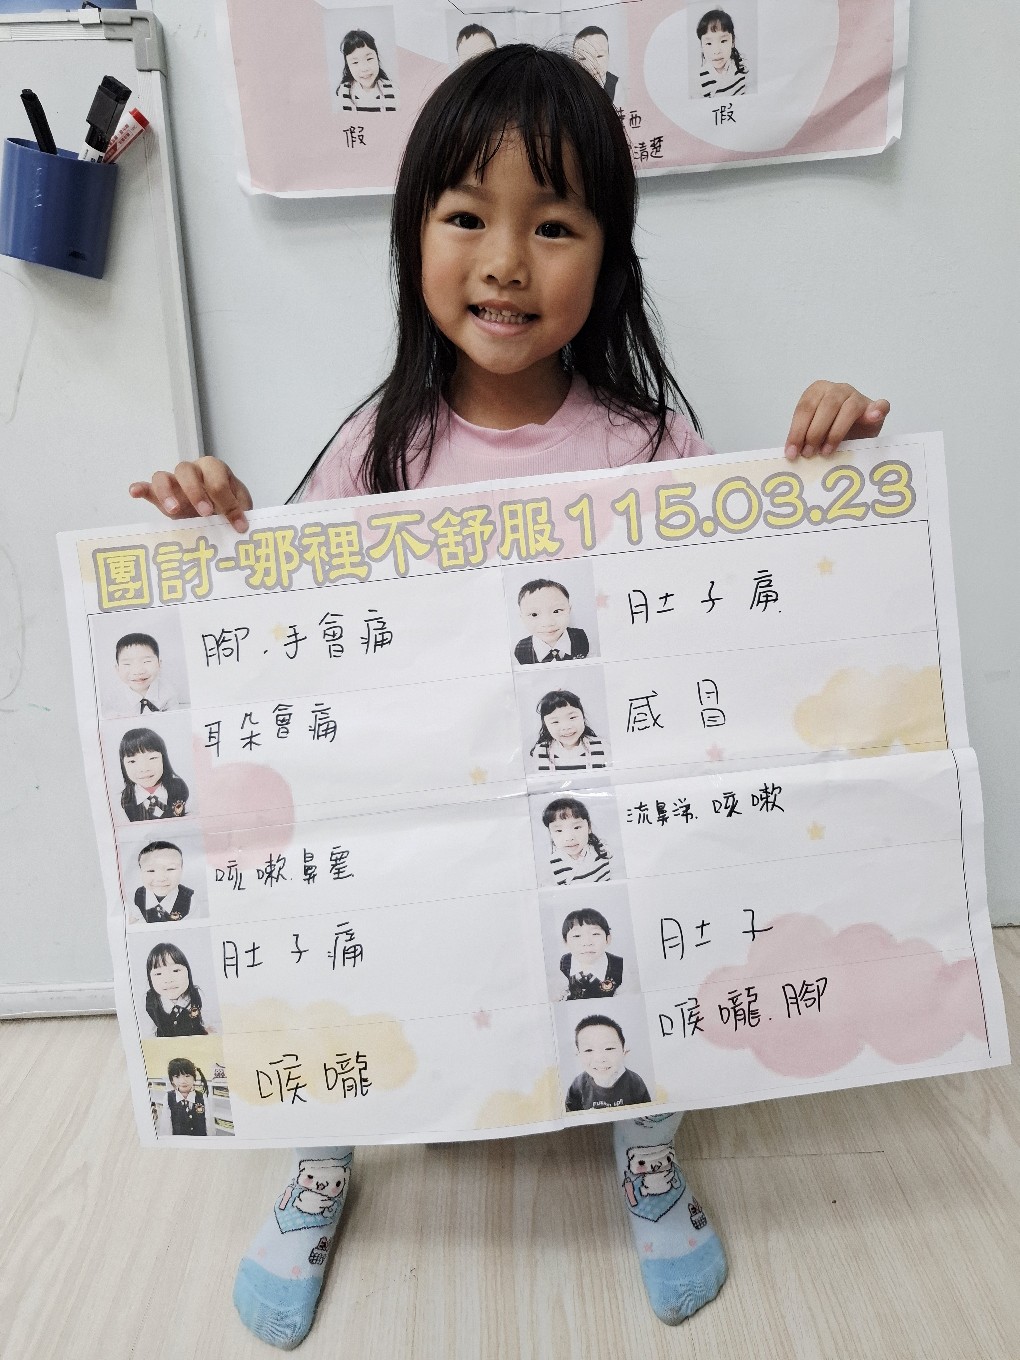 假
假
西
清蓮
團討-哪裡不舒服115.03.23
腳.手會痛
肚子痛
耳朵會痛
感冒
咳嗽.鼻塞
流鼻涕.咳嗽
肚子痛
肚子
喉嚨
喉嚨.腳